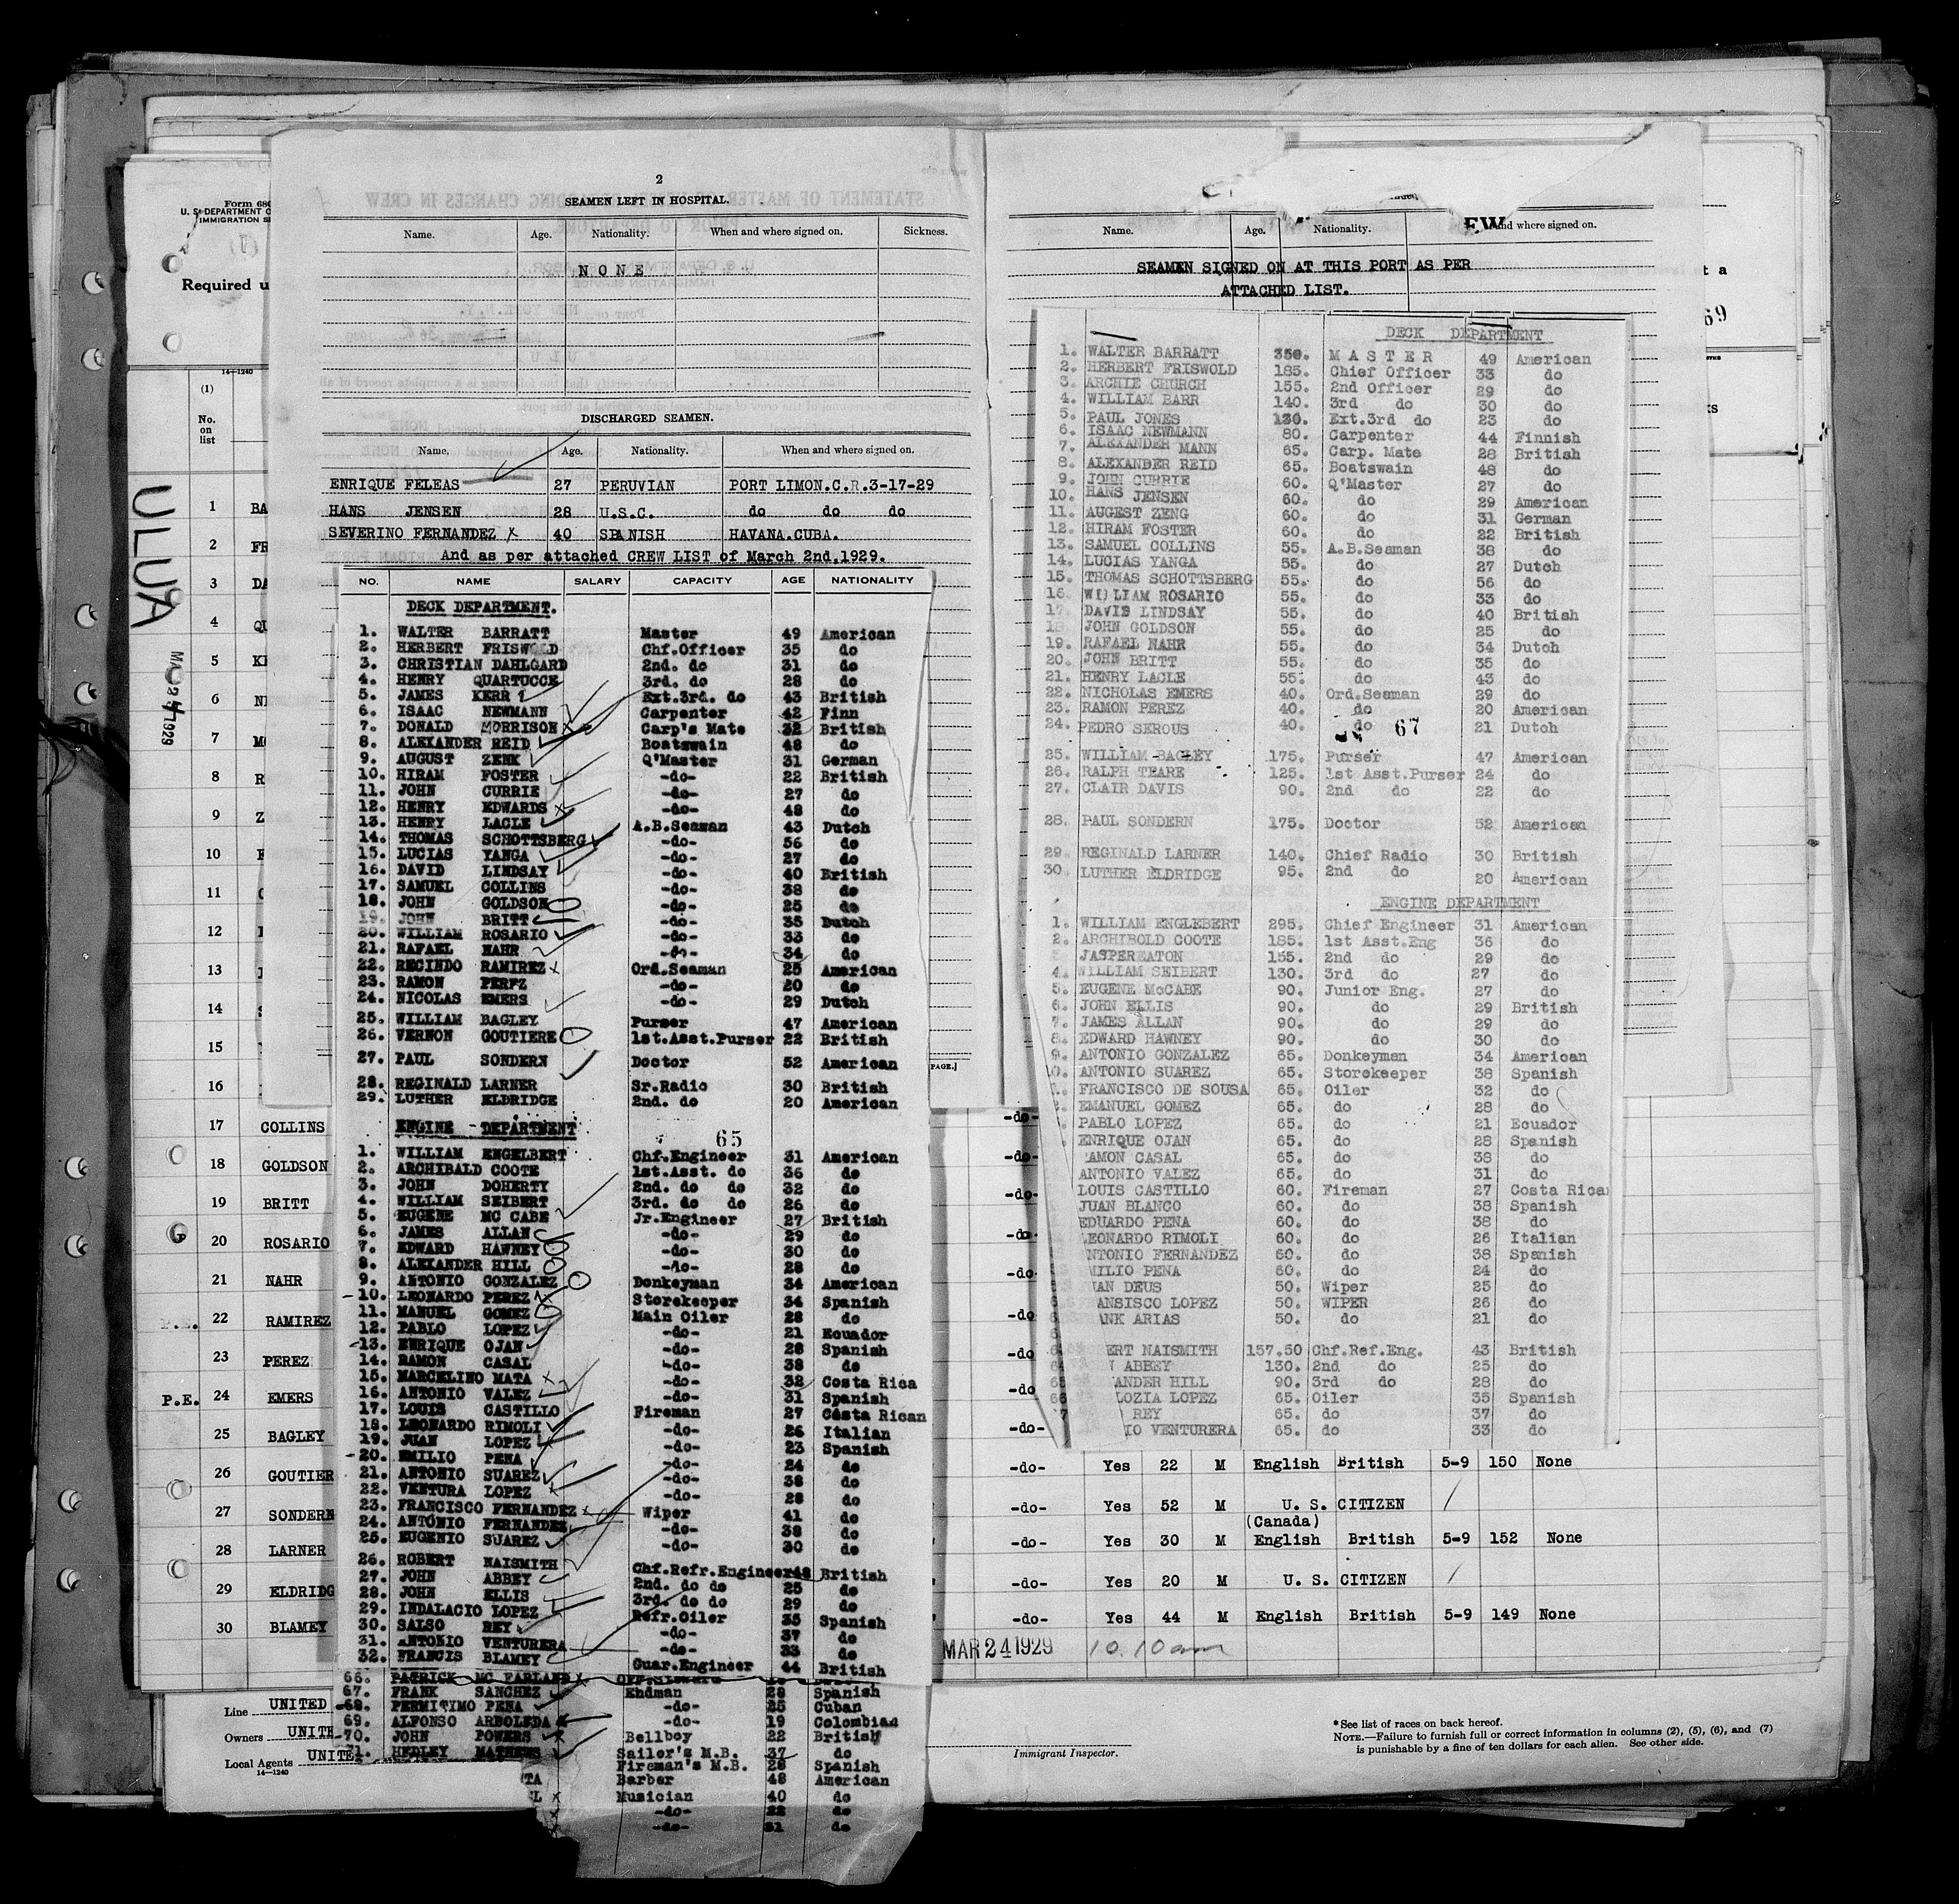 Form 680
U. S. DEPARTMENT O
IMMIGRATION SE
Required u
14—1240
(1)
No.
on
list
ULUA
MAR 24 1929
1 BA
2 FR
3 DA
4 QU
5 KE
6 NE
7 MO
8 R
9 Z
10 F
11 C
12
13
14
15
16
17 COLLINS
18 GOLDSON
19 BRITT
20 ROSARIO
21 NAHR
22 RAMIREZ
23 PEREZ
P.E. 24 EMERS
25 BAGLEY
26 GOUTIER
27 SONDERN
28 LARNER
29 ELDRIDG
30 BLAMEY
Line UNITED
Owners UNITE
Local Agents UNITE
14—1240
2
SEAMEN LEFT IN HOSPITAL.
Name. Age. Nationality. When and where signed on. Sickness.
NONE
DISCHARGED SEAMEN.
Name. Age. Nationality. When and where signed on.
ENRIQUE FELEAS 27 PERUVIAN PORT LIMON.C.R.3-17-29
HANS JENSEN 28 U.S.C. do do do
SEVERINO FERNANDEZ x 40 SPANISH HAVANA.CUBA.
And as per attached CREW LIST of March 2nd,1929.
NO. NAME SALARY CAPACITY AGE NATIONALITY
DECK DEPARTMENT.
1. WALTER BARRATT Master 49 American
2. HERBERT FRISWOLD Chf.Officer 35 do
3. CHRISTIAN DAHLGARD 2nd. do 31 do
4. HENRY QUARTUCCE 3rd. do 28 do
5. JAMES KERR Ext.3rd. do 43 British
6. ISAAC NEWMANN Carpenter 42 Finn
7. DONALD MORRISON Carp's Mate 32 British
8. ALEXANDER REID Boatswain 48 do
9. AUGUST ZENK Q'Master 31 German
10. HIRAM FOSTER -do- 22 British
11. JOHN CURRIE -do- 27 do
12. HENRY EDWARDS x -do- 48 do
13. HENRY LACLE A.B.Seaman 43 Dutch
14. THOMAS SCHOTTSBERG -do- 56 do
15. LUCIAS YANGA -do- 27 do
16. DAVID LINDSAY -do- 40 British
17. SAMUEL COLLINS -do- 38 do
18. JOHN GOLDSON -do- 25 do
19. JOHN BRITT -do- 35 Dutch
20. WILLIAM ROSARIO -do- 33 do
21. RAFAEL NAHR -do- 34 do
22. RECINDO RAMIREZ x Ord.Seaman 25 American
23. RAMON PERFZ -do- 20 do
24. NICOLAS EMERS -do- 29 Dutch
25. WILLIAM BAGLEY Purser 47 American
26. VERNON GOUTIERE 1st.Asst.Purser 22 British
27. PAUL SONDERN Doctor 52 American
28. REGINALD LARNER Sr.Radio 30 British
29. LUTHER ELDRIDGE 2nd. do 20 American
ENGINE DEPARTMENT
65
1. WILLIAM ENGELBERT Chf.Engineer 31 American
2. ARCHIBALD COOTE 1st.Asst. do 36 do
3. JOHN DOHERTY 2nd. do do 32 do
4. WILLIAM SEIBERT 3rd. do do 26 do
5. EUGENE MC CABE Jr.Engineer 27 British
6. JAMES ALLAN -do- 29 do
7. EDWARD HAWNEY -do- 30 do
8. ALEXANDER HILL -do- 28 do
9. ANTONIO GONZALEZ Donkeyman 34 American
-10. LEONARDO PEREZ x Storekeeper 34 Spanish
11. MANUEL GOMEZ Main Oiler 28 do
12. PABLO LOPEZ -do- 21 Ecuador
-13. ENRIQUE OJAN -do- 28 Spanish
14. RAMON CASAL -do- 38 do
15. MARCELINO MATA x -do- 32 Costa Rica
16. ANTONIO VALEZ -do- 31 Spanish
17. LOUIS CASTILLO Fireman 27 Costa Rican
18. LEONARDO RIMOLI -do- 26 Italian
19. JUAN LOPEZ -do- 23 Spanish
-20. EMILIO PENA -do- 24 do
21. ANTONIO SUAREZ -do- 38 do
22. VENTURA LOPEZ -do- 28 do
23. FRANCISCO FERNANDEZ x Wiper 41 do
24. ANTONIO FERNANDEZ -do- 38 do
25. EUGENIO SUAREZ -do- 30 do
26. ROBERT NAISMITH Chf.Refr.Engineer 43 British
27. JOHN ABBEY 2nd. do do 25 do
28. JOHN ELLIS 3rd. do do 29 do
29. INDALACIO LOPEZ Refr.Oiler 35 Spanish
30. SALSO REY -do- 37 do
31. ANTONIO VENTURERA -do- 33 do
32. FRANCIS BLAMEY Guar.Engineer 44 British
66. PATRICK MC FARLAND x
67. FRANK SANCHEZ Endman 28 Spanish
-68. PERMITYMO PENA -do- 25 Cuban
69. ALFONSO ARBOLEDA -do- 19 Colombian
-70. JOHN POWERS x Bellboy 22 British
71. HEDLEY MATHEWS Sailor's M.B. 37 do
Fireman's M.B. 28 Spanish
TA Barber 48 American
L x Musician 40 do
-do- 22 do
-do- 31 do
Name. Age. Nationality. and where signed on.
EW
SEAMEN SIGNED ON AT THIS PORT AS PER
ATTACHED LIST.
t a
69
DECK DEPARTMENT
1. WALTER BARRATT 350. MASTER 49 American
2. HERBERT FRISWOLD 185. Chief Officer 33 do
3. ARCHIE CHURCH 155. 2nd Officer 29 do
4. WILLIAM BARR 140. 3rd do 30 do
5. PAUL JONES 130. Ext.3rd do 23 do
6. ISAAC NEWMANN 80. Carpenter 44 Finnish
7. ALEXANDER MANN 65. Carp. Mate 28 British
8. ALEXANDER REID 65. Boatswain 48 do
9. JOHN CURRIE 60. Q'Master 27 do
10. HANS JENSEN 60. do 29 American
11. AUGEST ZENG 60. do 31 German
12. HIRAM FOSTER 60. do 22 British
13. SAMUEL COLLINS 55. A.B.Seaman 38 do
14. LUCIAS YANGA 55. do 27 Dutch
15. THOMAS SCHOTTSBERG 55. do 56 do
16. WILLIAM ROSARIO 55. do 33 do
17. DAVIS LINDSAY 55. do 40 British
18 JOHN GOLDSON 55. do 25 do
19. RAFAEL NAHR 55. do 34 Dutch
20. JOHN BRITT 55. do 35 do
21. HENRY LACLE 55. do 43 do
22. NICHOLAS EMERS 40. Ord.Seaman 29 do
23. RAMON PEREZ 40. do 20 American
24. PEDRO SEROUS 40. do 21 Dutch
67
25. WILLIAM BAGLEY 175. Purser 47 American
26. RALPH TEARE 125. 1st Asst.Purser 24 do
27. CLAIR DAVIS 90. 2nd do 22 do
28. PAUL SONDERN 175. Doctor 52 American
29. REGINALD LARNER 140. Chief Radio 30 British
30. LUTHER ELDRIDGE 95. 2nd do 20 American
ENGINE DEPARTMENT
1. WILLIAM ENGLEBERT 295. Chief Engineer 31 American
2. ARCHIBOLD COOTE 185. 1st Asst.Eng 36 do
JASPER EATON 155. 2nd do 29 do
4. WILLIAM SEIBERT 130. 3rd do 27 do
5. EUGENE McCABE 90. Junior Eng. 27 do
6. JOHN ELLIS 90. do 29 British
7. JAMES ALLAN 90. do 29 do
8. EDWARD HAWNEY 90. do 30 do
9. ANTONIO GONZALEZ 65. Donkeyman 34 American
0. ANTONIO SUAREZ 65. Storekeeper 38 Spanish
FRANCISCO DE SOUSA 65. Oiler 32 do
EMANUEL GOMEZ 65. do 28 do
PABLO LOPEZ 65. do 21 Ecuador
ENRIQUE OJAN 65. do 28 Spanish
AMON CASAL 65. do 38 do
ANTONIO VALEZ 65. do 31 do
LOUIS CASTILLO 60. Fireman 27 Costa Rica
JUAN BLANCO 60. do 38 Spanish
EDUARDO PENA 60. do 38 do
LEONARDO RIMOLI 60. do 26 Italian
NTONIO FERNANDEZ 60. do 38 Spanish
MILIO PENA 60. do 24 do
AN DEUS 50. Wiper 25 do
ANSISCO LOPEZ 50. WIPER 26 do
ANK ARIAS 50. do 21 do
ERT NAISMITH 157.50 Chf.Ref.Eng. 43 British
ABBEY 130. 2nd do 25 do
ANDER HILL 90. 3rd do 28 do
LOZIA LOPEZ 65. Oiler 35 Spanish
REY 65. do 37 do
IO VENTURERA 65. do 33 do
PAGE.]
-do-
-do-
-do-
-do-
-do-
-do-
-do-
-do-
-do-
-do- Yes 22 M English British 5-9 150 None
-do- Yes 52 M U. S. CITIZEN /
(Canada)
-do- Yes 30 M English British 5-9 152 None
-do- Yes 20 M U. S. CITIZEN /
-do- Yes 44 M English British 5-9 149 None
MAR 24 1929 10.10 am
Immigrant Inspector.
*See list of races on back hereof.
NOTE.—Failure to furnish full or correct information in columns (2), (5), (6), and (7)
is punishable by a fine of ten dollars for each alien. See other side.